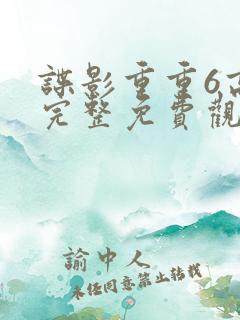 諜影重重6,高
完整免費觀
諭中人
未经同意禁止转载